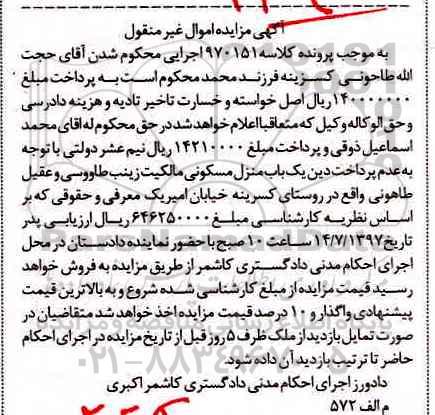 آگهی مزایده اموال غیر منقول
به موجب پرونده کلاسه ۹۷۰۱۵۱ اجرایی محکوم شدن آقای حجت
الله طاحونی کسرینه فرزند محمد محکوم است به پرداخت مبلغ
۱۴۰۰۰۰۰۰۰ ریال اصل خواسته و خسارت تاخیر تادیه و هزینه دادرسی
و حق الوکاله وکیل که متعاقبا اعلام خواهد شد در حق محکوم له اقای محمد
اسماعیل ذوقی و پرداخت مبلغ ۱۴۲۱۰۰۰۰ ریال نیم عشر دولتی با توجه
به عدم پرداخت دین یک باب منزل مسکونی مالکیت زینب طاووسی و عقیل
طاهونی واقع در روستای کسرینه خیابان امیربک معرفی و حقوقی که بر
اساس نظریه کارشناسی مبلغ ۶۴۶۲۵۰۰۰۰ ریال ارزیابی پدر
تاریخ ۱۴/۷/۱۳۹۷ ساعت ۱۰ صبح با حضور نماینده دادستان در محل
اجرای احکام مدنی دادگستری کاشمر از طریق مزایده به فروش خواهد
رسید قیمت مزایده از مبلغ کارشناسی شده شروع و به بالاترین قیمت
پیشنهادی واگذار و ۱۰ درصد قیمت مزایده اخذ خواهد شد متقاضیان در
صورت تمایل بازدید از ملک ظرف ۵ روز قبل از تاریخ مزایده در اجرای احکام
حاضر تا ترتیب بازدید آن داده شود.
دادورز اجرای احکام مدنی دادگستری کاشمر اکبری
م الف ۵۷۲
۰۲۱-۸۸۳۴۹۶۷۰-۵